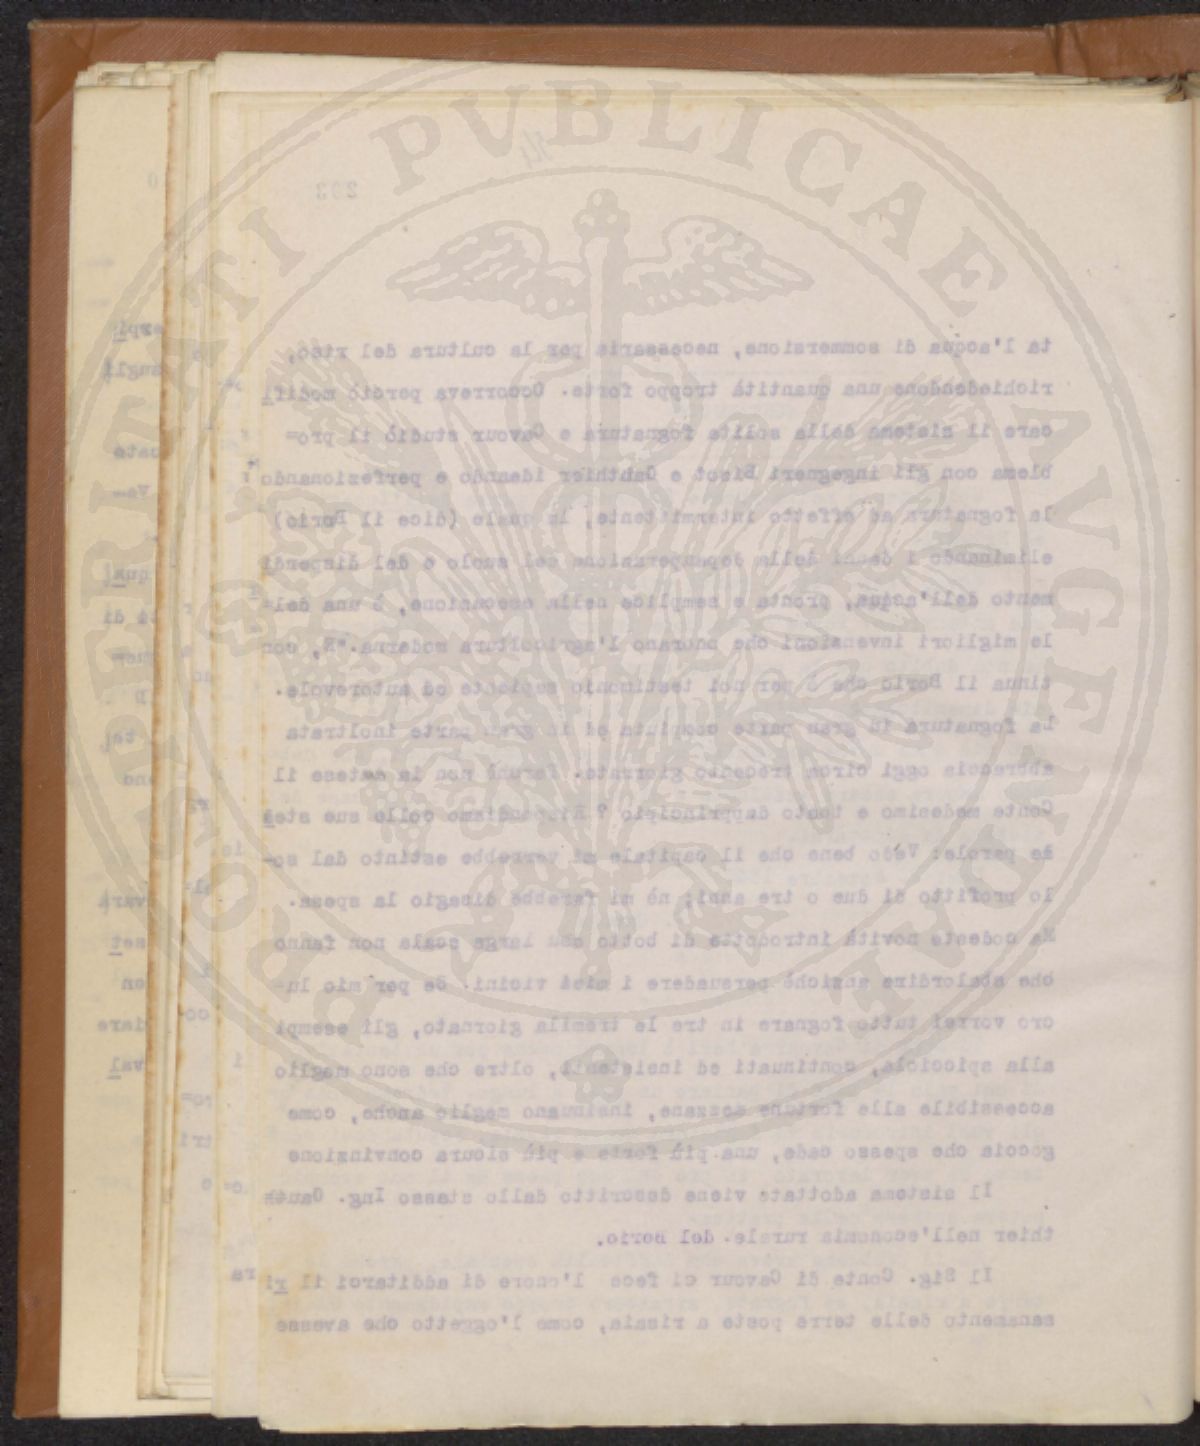 PROSPERITATI PUBLICAE AVGENDAE
203
ta l'acqua di sommersione, necessaria per la cultura del riso,
richiedendone una quantità troppo forte. Occorreva perciò modifi
care il sistema della solita fognatura e Cavour studiò il pro=
blema con gli ingegneri Bisot e Gahthier ideando e perfezionando
la fognatura ad effetto intermittente, la quale (dice il Borio)
eliminando i danni della depauperazione del suolo e del dispendi
mento dell'acqua, pronta e semplice nella esecuzione, è una del=
le migliori invenzioni che notrano l'agricoltura moderna. E, con
tinua il Borio che è per noi testimonio sapiente ed autorevole.
La fognatura in gran parte compiuta ed in gran parte inoltrata
abbraccia oggi circa trecento giornate. Perchè non la estese il
Conte medesimo e tosto dapprincipio ? Rispondiamo colle sue stes
se parole: Vedo bene che il capitale mi verrebbe estinto dal so-
lo profitto di due o tre anni; nè mi farebbe disagio la spesa.
Ma codeste novità introdotte di botto su larga scala non fanno
che sbalordire anzichè persuadere i miei vicini. Se per mio lu-
cro vorrei tutto fognare in tre le tremila giornate, gli esempi
alla spicciola, continuati ed insistenti, oltre che sono meglio
accessibile alle fortune mezzane, insinuano meglio anche, come
goccia che spesso cade, una più forte e più sicura convinzione
Il sistema adottato viene descritto dallo stesso Ing. Gauth
thier nell'economia rurale. del Borio.
Il Sig. Conte di Cavour ci fece l'onore di additarci il ri
sanamento delle terre poste a risaia, come l'oggetto che avesse